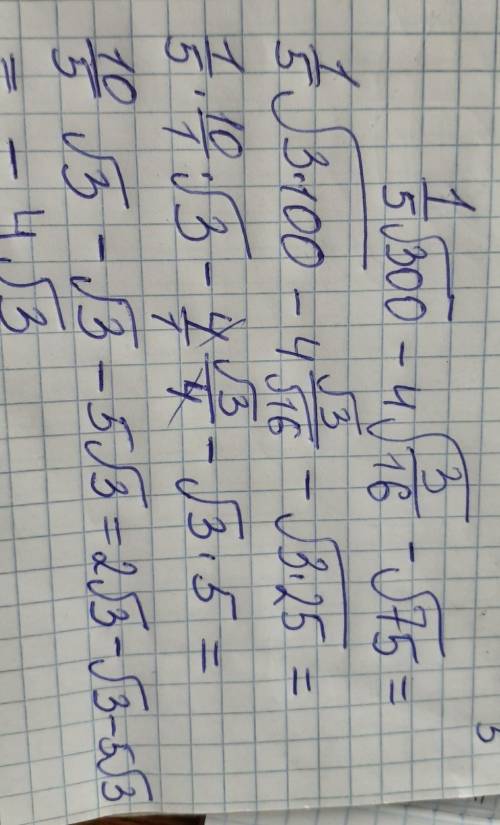 1/5 √300 − 4√(3/16) − √75 =
1/5 √(3·100) − 4 √3/√16 − √(3·25) =
1/5 · 10/1 · √3 − 4/1 √3/4 − √3 · 5 =
10/5 √3 − √3 − 5√3 = 2√3 − √3 − 5√3
= − 4√3